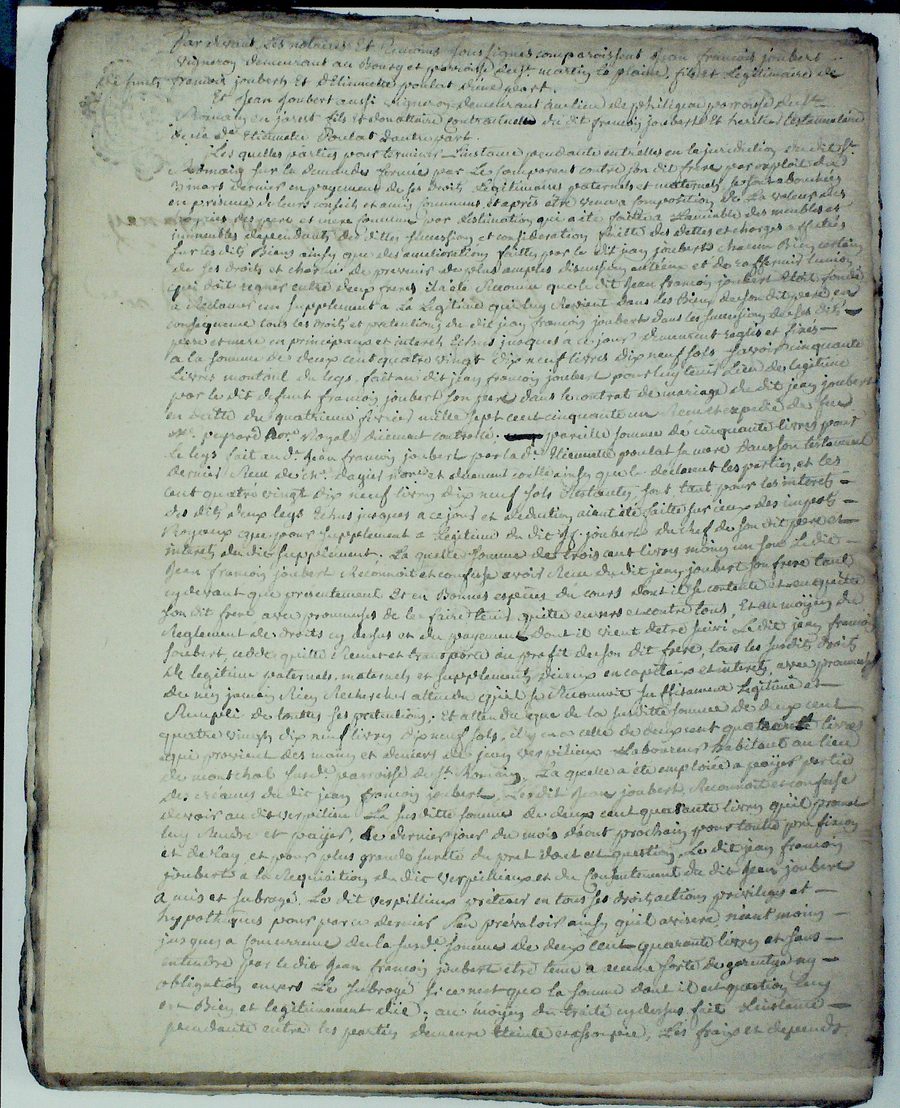 Par devant Les notaires Et Temoins soussignes comparoissent jean francois joubert
vigneron demeurant au Bourg et paroisse de st martin La plaine, fils et Legitimaire de
de funts francois joubert Et d'Etiennette poulat d'une part.
Et Jean Joubert aussi vigneron demeurant au lieu de paroisse de st
Romain en jarest fils et donataire contractuelle du dit francois joubert Et heritier testamentaire
de la de Etiennette Poulat d'autre part.
Les quelles parties pour terminer L'instance pendante entr'elles en la juridiction du dit st
Romain sur la demande formée par Le comparant contre son dit frere par exploit du
3 mars dernier en payement de ses droits Legitimaires paternels et maternels, se sont abouchées
en presence de leurs conseils et amis communs et apres être venu a composition de La valeur des
des pere et mere communs par d'estimation qui a été faitte a L'amiable des meubles et
immeubles dependants des dittes succession et consideration faitte des dettes et charges affectées
sur les dits Biens ainsy que des ameliorations faittes par le dit jean joubert chacun Bien certain
de ses droits et charmé de prevenir de plus amples discussions entr'eux et de raffermir l'union
qui doit regner entre deux freres il a été Reconnu que le dit Jean francois joubert étoit fondé
a Reclamer un supplement a La Legitime qui luy Revient dans les Biens de son dit pere en
consequence tous les droits et pretentions du dit jean francois joubert dans les successions de ses dits
pere et mere en principaux et interets Echus jusques a ce jour demeurent reglés et fixés
a la somme de deux cent quatre vingt dix neuf livres dix neuf sols savoir cinquante
Livres montant du legs fait au dit jean francois joubert pour luy tenir Lieu de legitime
par le dit defunt francois joubert son pere dans le contrat de mariage du dit jean joubert
en datte du quatrieme fevrier mille sept cent cinquante un Recu et expedié de feu
me. peyrard nore. Royal düement controllé. pareille somme de cinquante livres pour
le legs fait au dt. Jean francois joubert par la de. Etiennette poulat sa mere dans son testament
dernier Recu de me. dagier nore. et düement controllé ainsy que le declarent les parties, et les
cent quatre vingt dix neuf livres dix neuf sols Restantes, sont tant pour les interets
des dits deux legs Echus jusques a ce jour et deduction aiant été faitte sur iceux des impots
Royaux que pour supplement a Legitime du dit jf. joubert du chef de son dit pere et
interets du dit supplement. La quelle somme de trois cent livres moins un sou Le dit
Jean francois joubert Reconnoit et confesse avoir Recu du dit jean joubert son frere tant
cy devant que presentement Et en Bonnes especes du cours dont il se contente et en quitte
son dit frere avec promesses de le faire tenir quitte envers et contre tous, Et au moyen du
Reglement de droits cy dessus et du payement dont il vient d'etre suivi Le dit jean francois
joubert, cedde, quitte, Remet et transporte au profit de son dit frere, tous les susdits droits
de legitime paternels, maternels et supplements d'iceux en capitaux et interets, avec promesse
de n'en jamais Rien Rechercher attendu qu'il se Reconnoit suffisament Legitimé et
Rempli de touttes ses pretentions. Et attendu que de la susditte somme de deux cent
quatre vingt dix neuf livres dix neuf sols, il y en a celle de deux cent quarante livres
qui provient des mains et deniers de jean verpilieux Laboureur habitant au lieu
de montchal susde. paroisse de st. Romain, La quelle a été emploiée a payer partie
des creances du dit jean francois joubert, Le dit Jean joubert, Reconnoit et confesse
devoir au dit verpilieux La susditte somme de deux cent quarante livres qu'il promet
luy Rendre et payer, le dernier jour du mois d'aout prochain pour toutte prefixion
et delay, et pour plus grande sureté du pret dont est question, Le dit jean francois
joubert a la Requisition du dit verpillieux et du consentement du dit Jean joubert
a mis et subrogé, Le dit verpillieux preteur en tous ses droits, actions privileges et
hypotheques pour par ce dernier s'en prévaloir ainsy qu'il avisera néant moins
jusques a concurrence de la susde. somme de deux cent quarante livres et sans
entendre par le dit Jean francois joubert etre tenu a aucune sorte de garentye ny
obligation envers Le subrogé si ce n'est que la somme dont il est question luy
est Bien et legitimement düe; au moyen du traité cy dessus fait L'instance
pendante entre les parties demeure éteinte et assoupie, Les fraix et depends